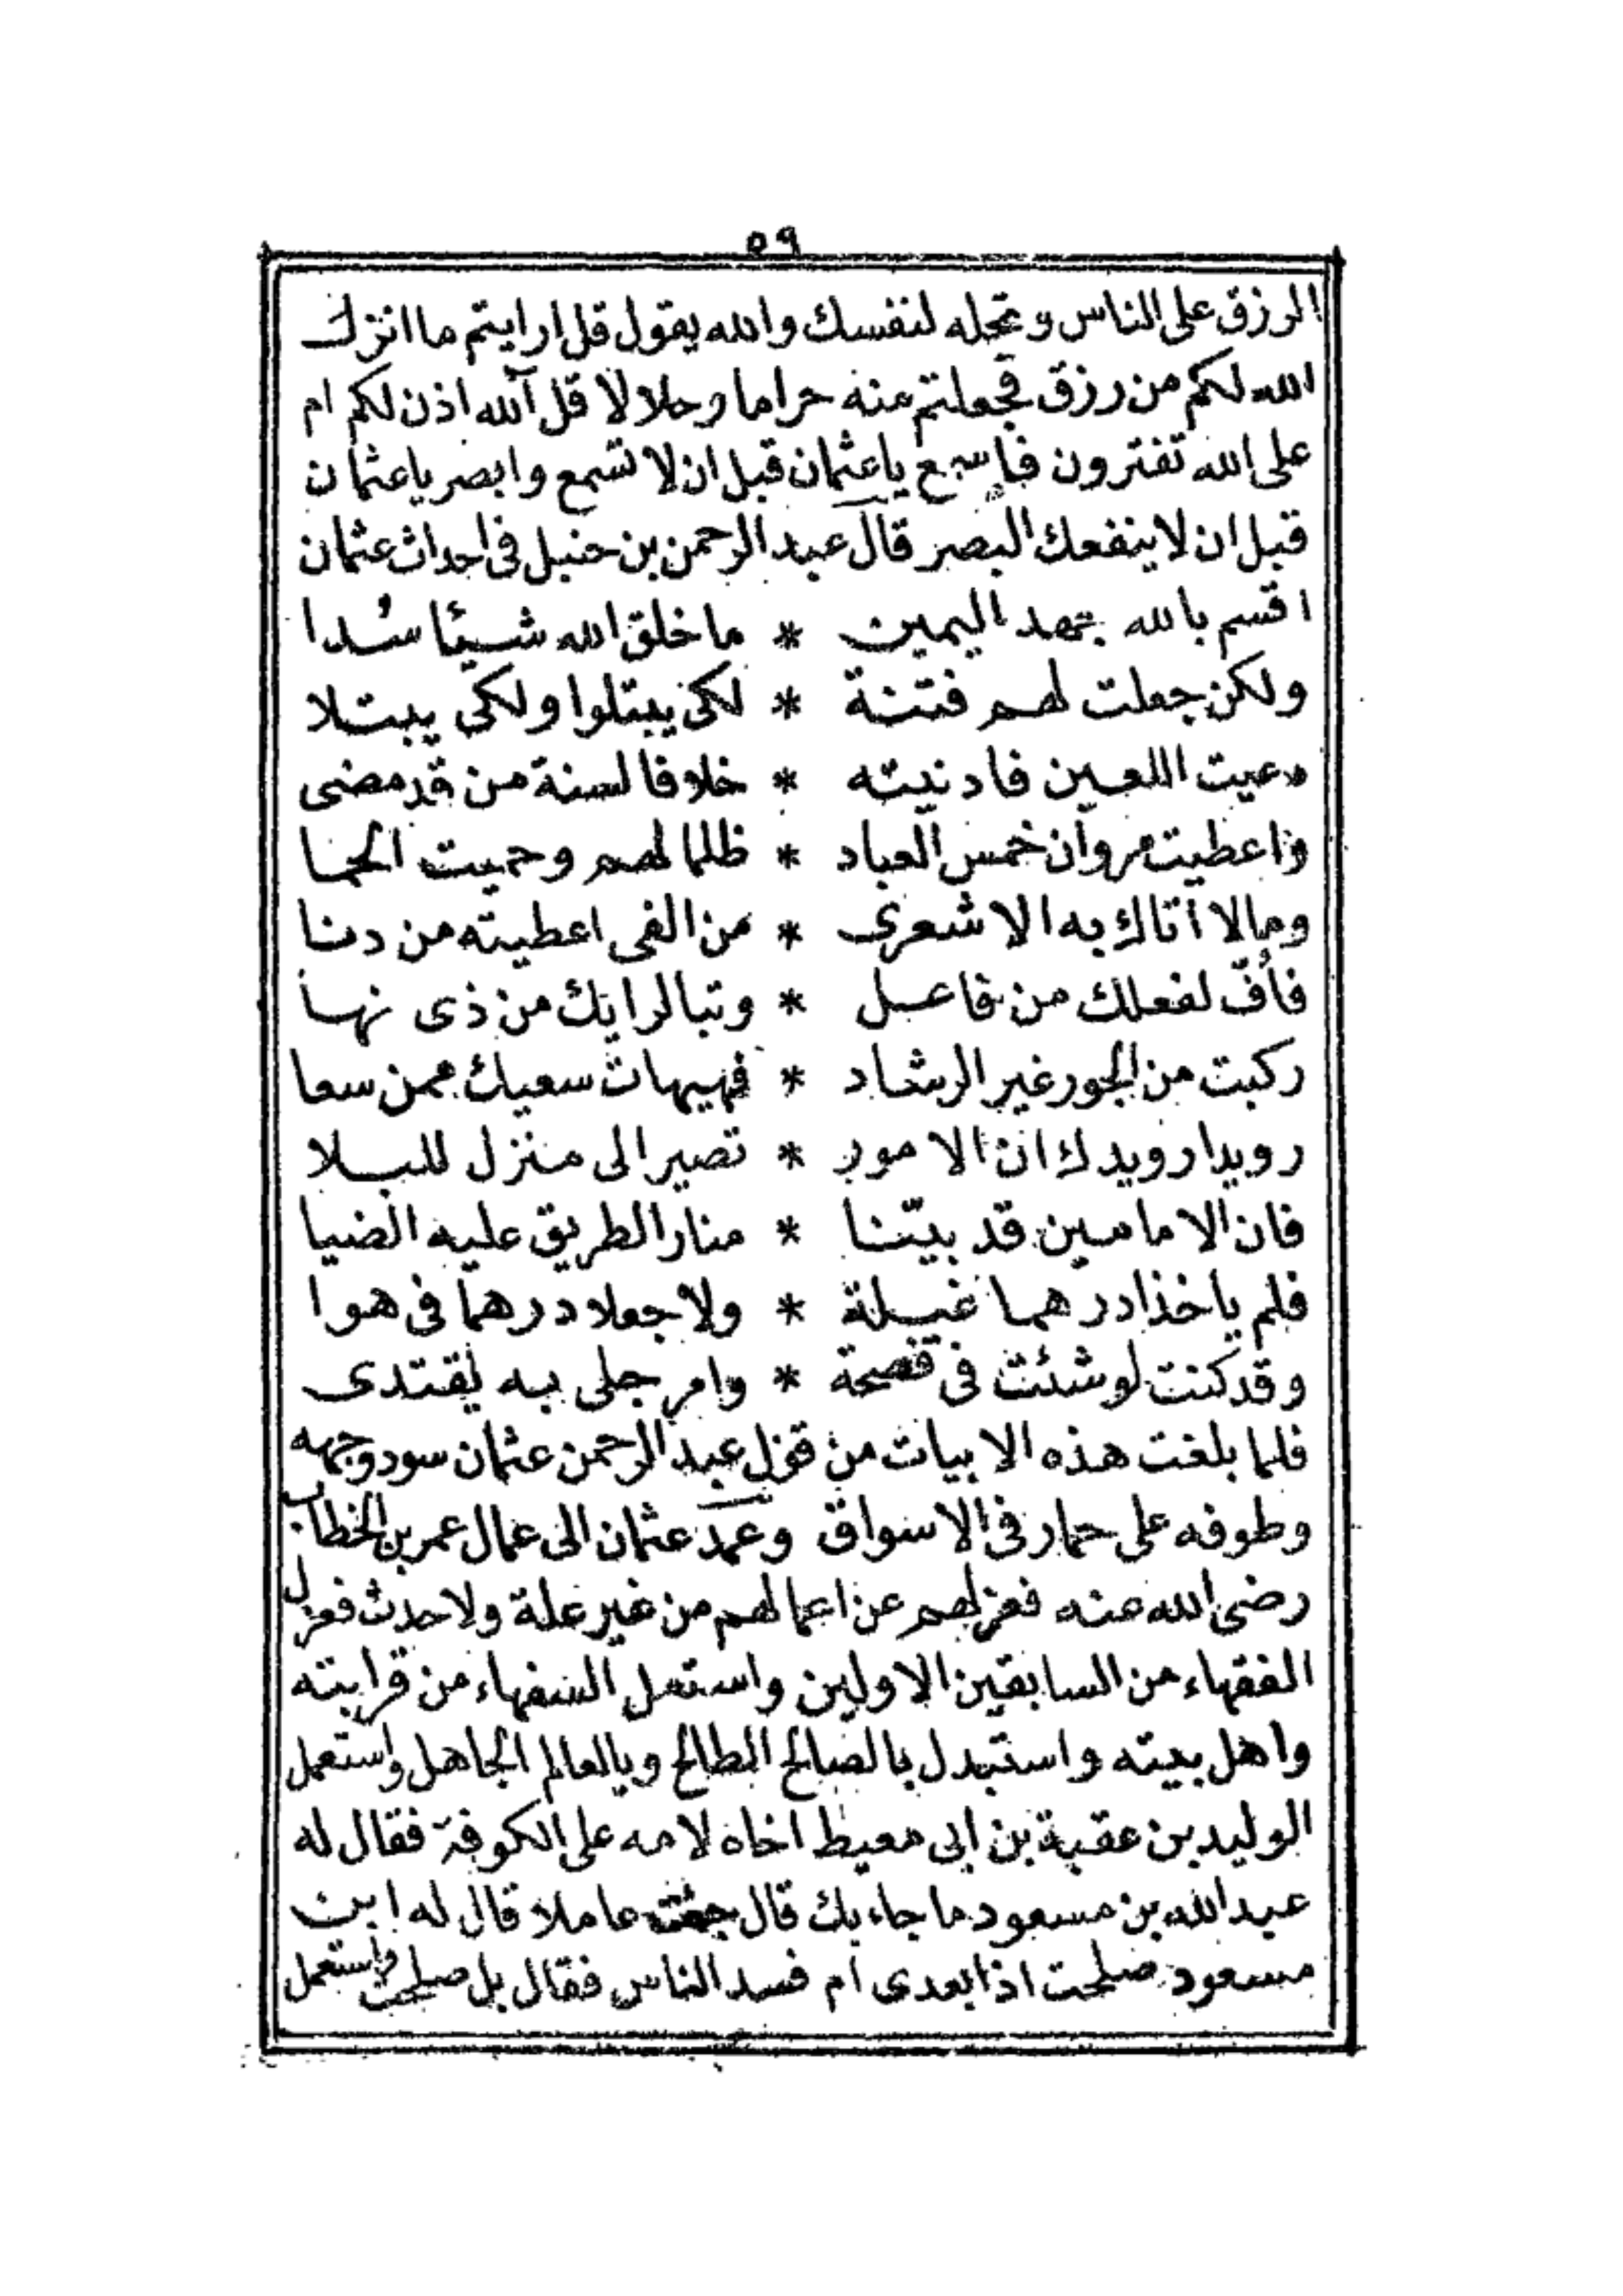 ٥٩
الرزق على الناس وتحله لنفسك والله يقول قل ارايتم ما انزل
الله لكم من رزق فجعلتم منه حراما وحلالا قل آلله اذن لكم ام
على الله تفترون فاسمع ياعثمان قبل ان لا تسمع وابصر ياعثمان
قبل ان لا ينفعك البصر قال عبد الرحمن بن حنبل فى احداث عثمان
اقسم بالله جهد اليمين * ما خلق الله شيئا سُدا
ولكن جعلت لهم فتنة * لكى يبتلوا ولكى يبتلا
دعيت اللعين فادنيته * خلافا لسنة من قد مضى
واعطيت مروان خمس العباد * ظلما لهم وحميت الحما
ومالا اتاك به الاشعرى * من الفى اعطيته من دنا
فأفّ لفعلك من فاعل * وتبا لرايك من ذى نها
ركبت من الجور غير الرشاد * فهيهات سعيك ممن سعا
رويدا رويدك ان الامور * تصير الى منزل للبلا
فان الامامين قد بيّنا * منار الطريق عليه الضيا
فلم ياخذا درهما غيلة * ولا جعلا درهما فى هوا
وقد كنت لو شئت فى فسحة * وامر جلى به يقتدى
فلما بلغت هذه الابيات من قول عبد الرحمن عثمان سود وجهه
وطوفه على حمار فى الاسواق وعمد عثمان الى عمال عمر بن الخطاب
رضى الله عنه فعزلهم عن اعمالهم من غير علة ولا حدث فعزل
الفقهاء من السابقين الاولين واستعمل السفهاء من قرابته
واهل بيته واستبدل بالصالح الطالح وبالعالم الجاهل واستعمل
الوليد بن عقبة بن ابى معيط اخاه لامه على الكوفة فقال له
عبد الله بن مسعود ما جاء بك قال جئت عاملا قال له ابن
مسعود صلحت اذا بعدى ام فسد الناس فقال بل صلحت واستعمل